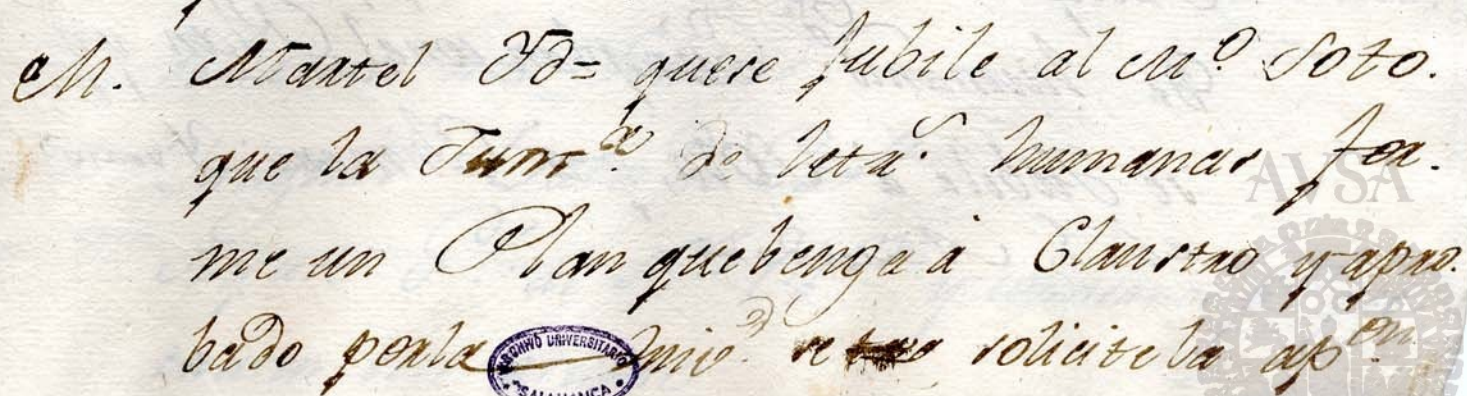 M. Martel Yd= quese Jubile al M.º Soto.
que la Junt.ª de letr.s humanas for-
me un Plan que benga à Claustro y apro-
bado por la Univ.d se solicite la ap.on
ARCHIVO UNIVERSITARIO
SALAMANCA
AVSA